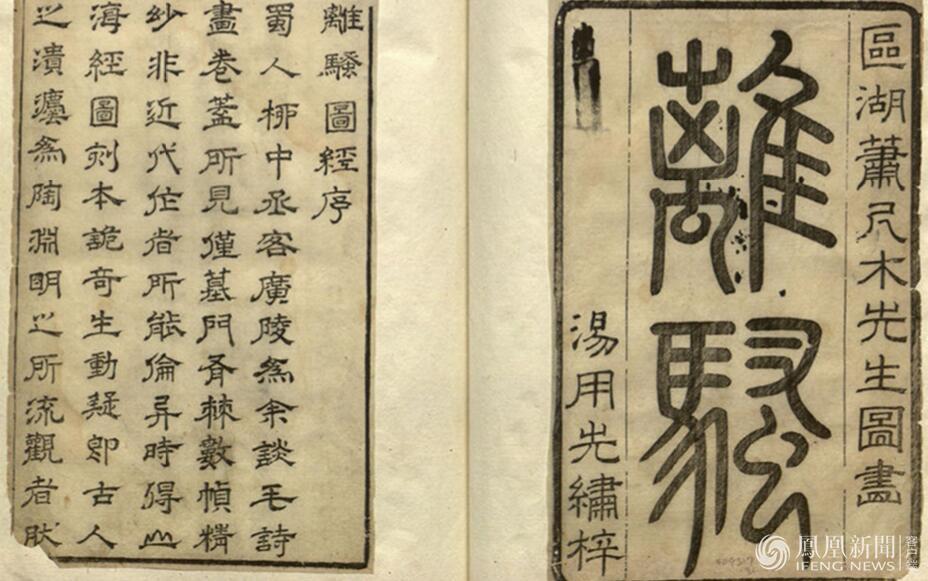 區湖蕭尺木先生圖畫
離騷
湯用先繡梓
離騷圖經序
蜀人柳中丞客廣陵為余談毛詩
畫卷蓋所見僅墓門有棘數幀精
玅非近代作者所能倫異時得山
海經圖刻本詭奇生動疑即古人
之漬為陶淵明之所流觀者肰
鳳凰新聞
IFENG NEWS
客戶端